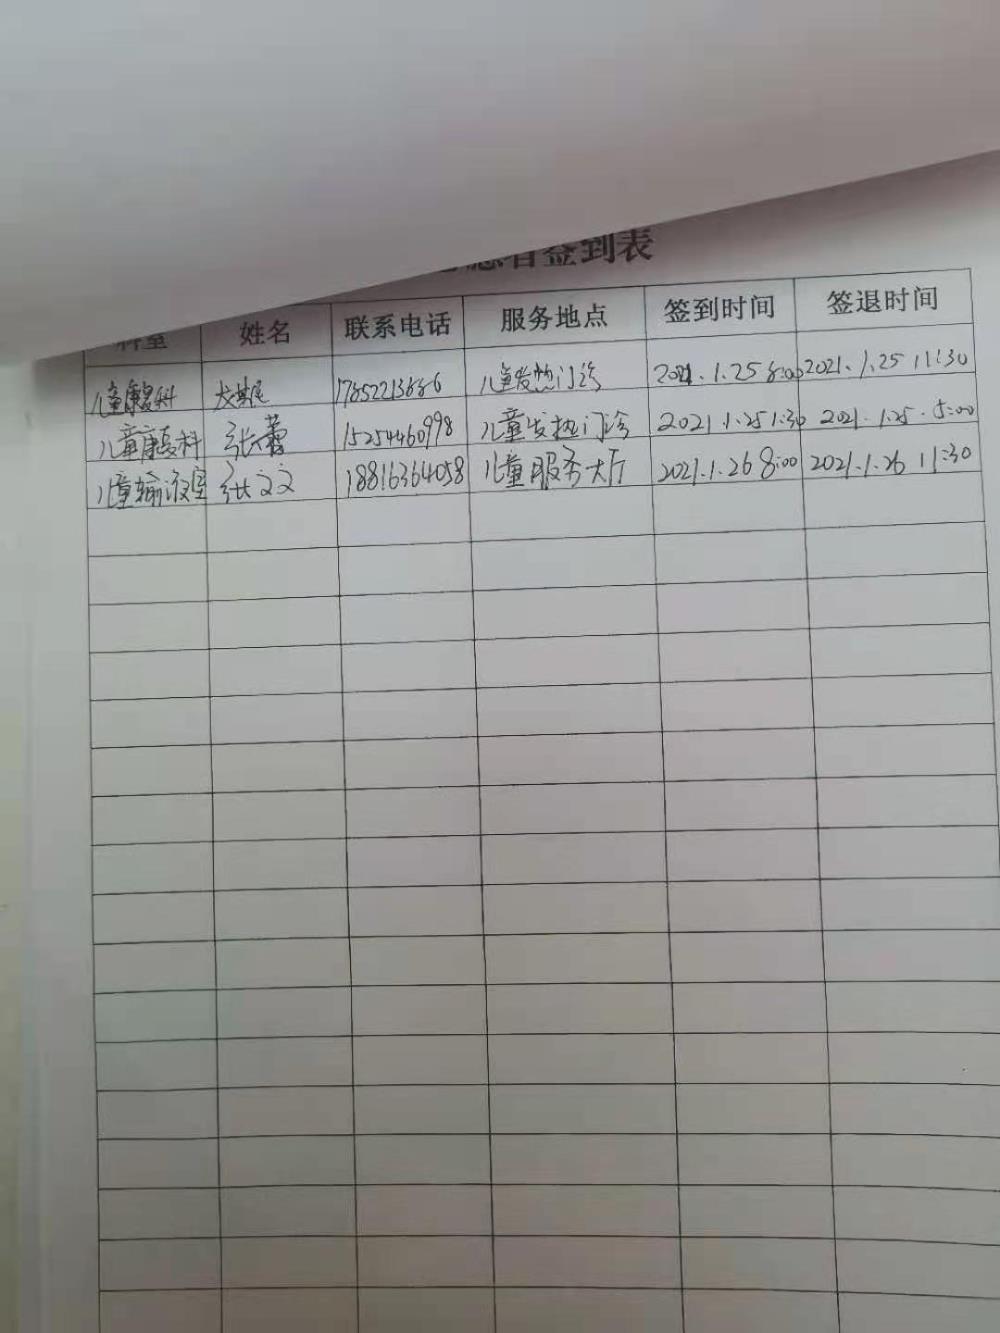 志愿者签到表
科室 姓名 联系电话 服务地点 签到时间 签退时间
儿童康复科 儿童发热门诊 2021.1.25 8:00 2021.1.25 11:30
儿童康复科 张蕾 15254460998 儿童发热门诊 2021.1.25 1:30 2021.1.25.5:00
儿童输液室 张文文 18816364058 儿童服务大厅 2021.1.26 8:00 2021.1.26 11:30